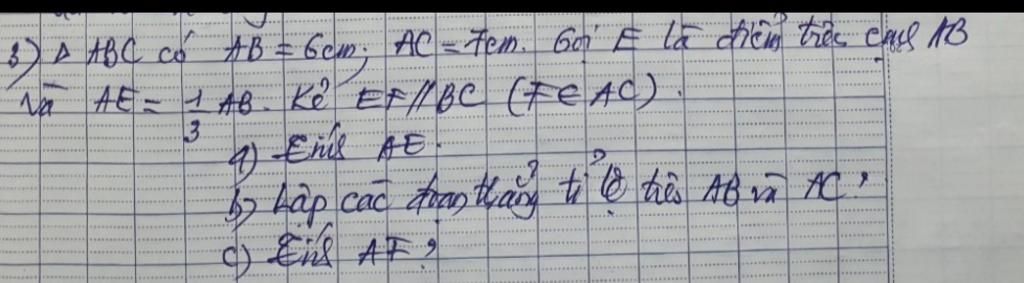 3) Δ ABC có AB = 6cm; AC = 7cm. Gọi E là điểm trên cạnh AB
Và AE = 1/3 AB. Kẻ EF // BC (F ∈ AC).
a) Tính AE.
b) Lập các đoạn thẳng tỉ lệ trên AB và AC?
c) Tính AF?